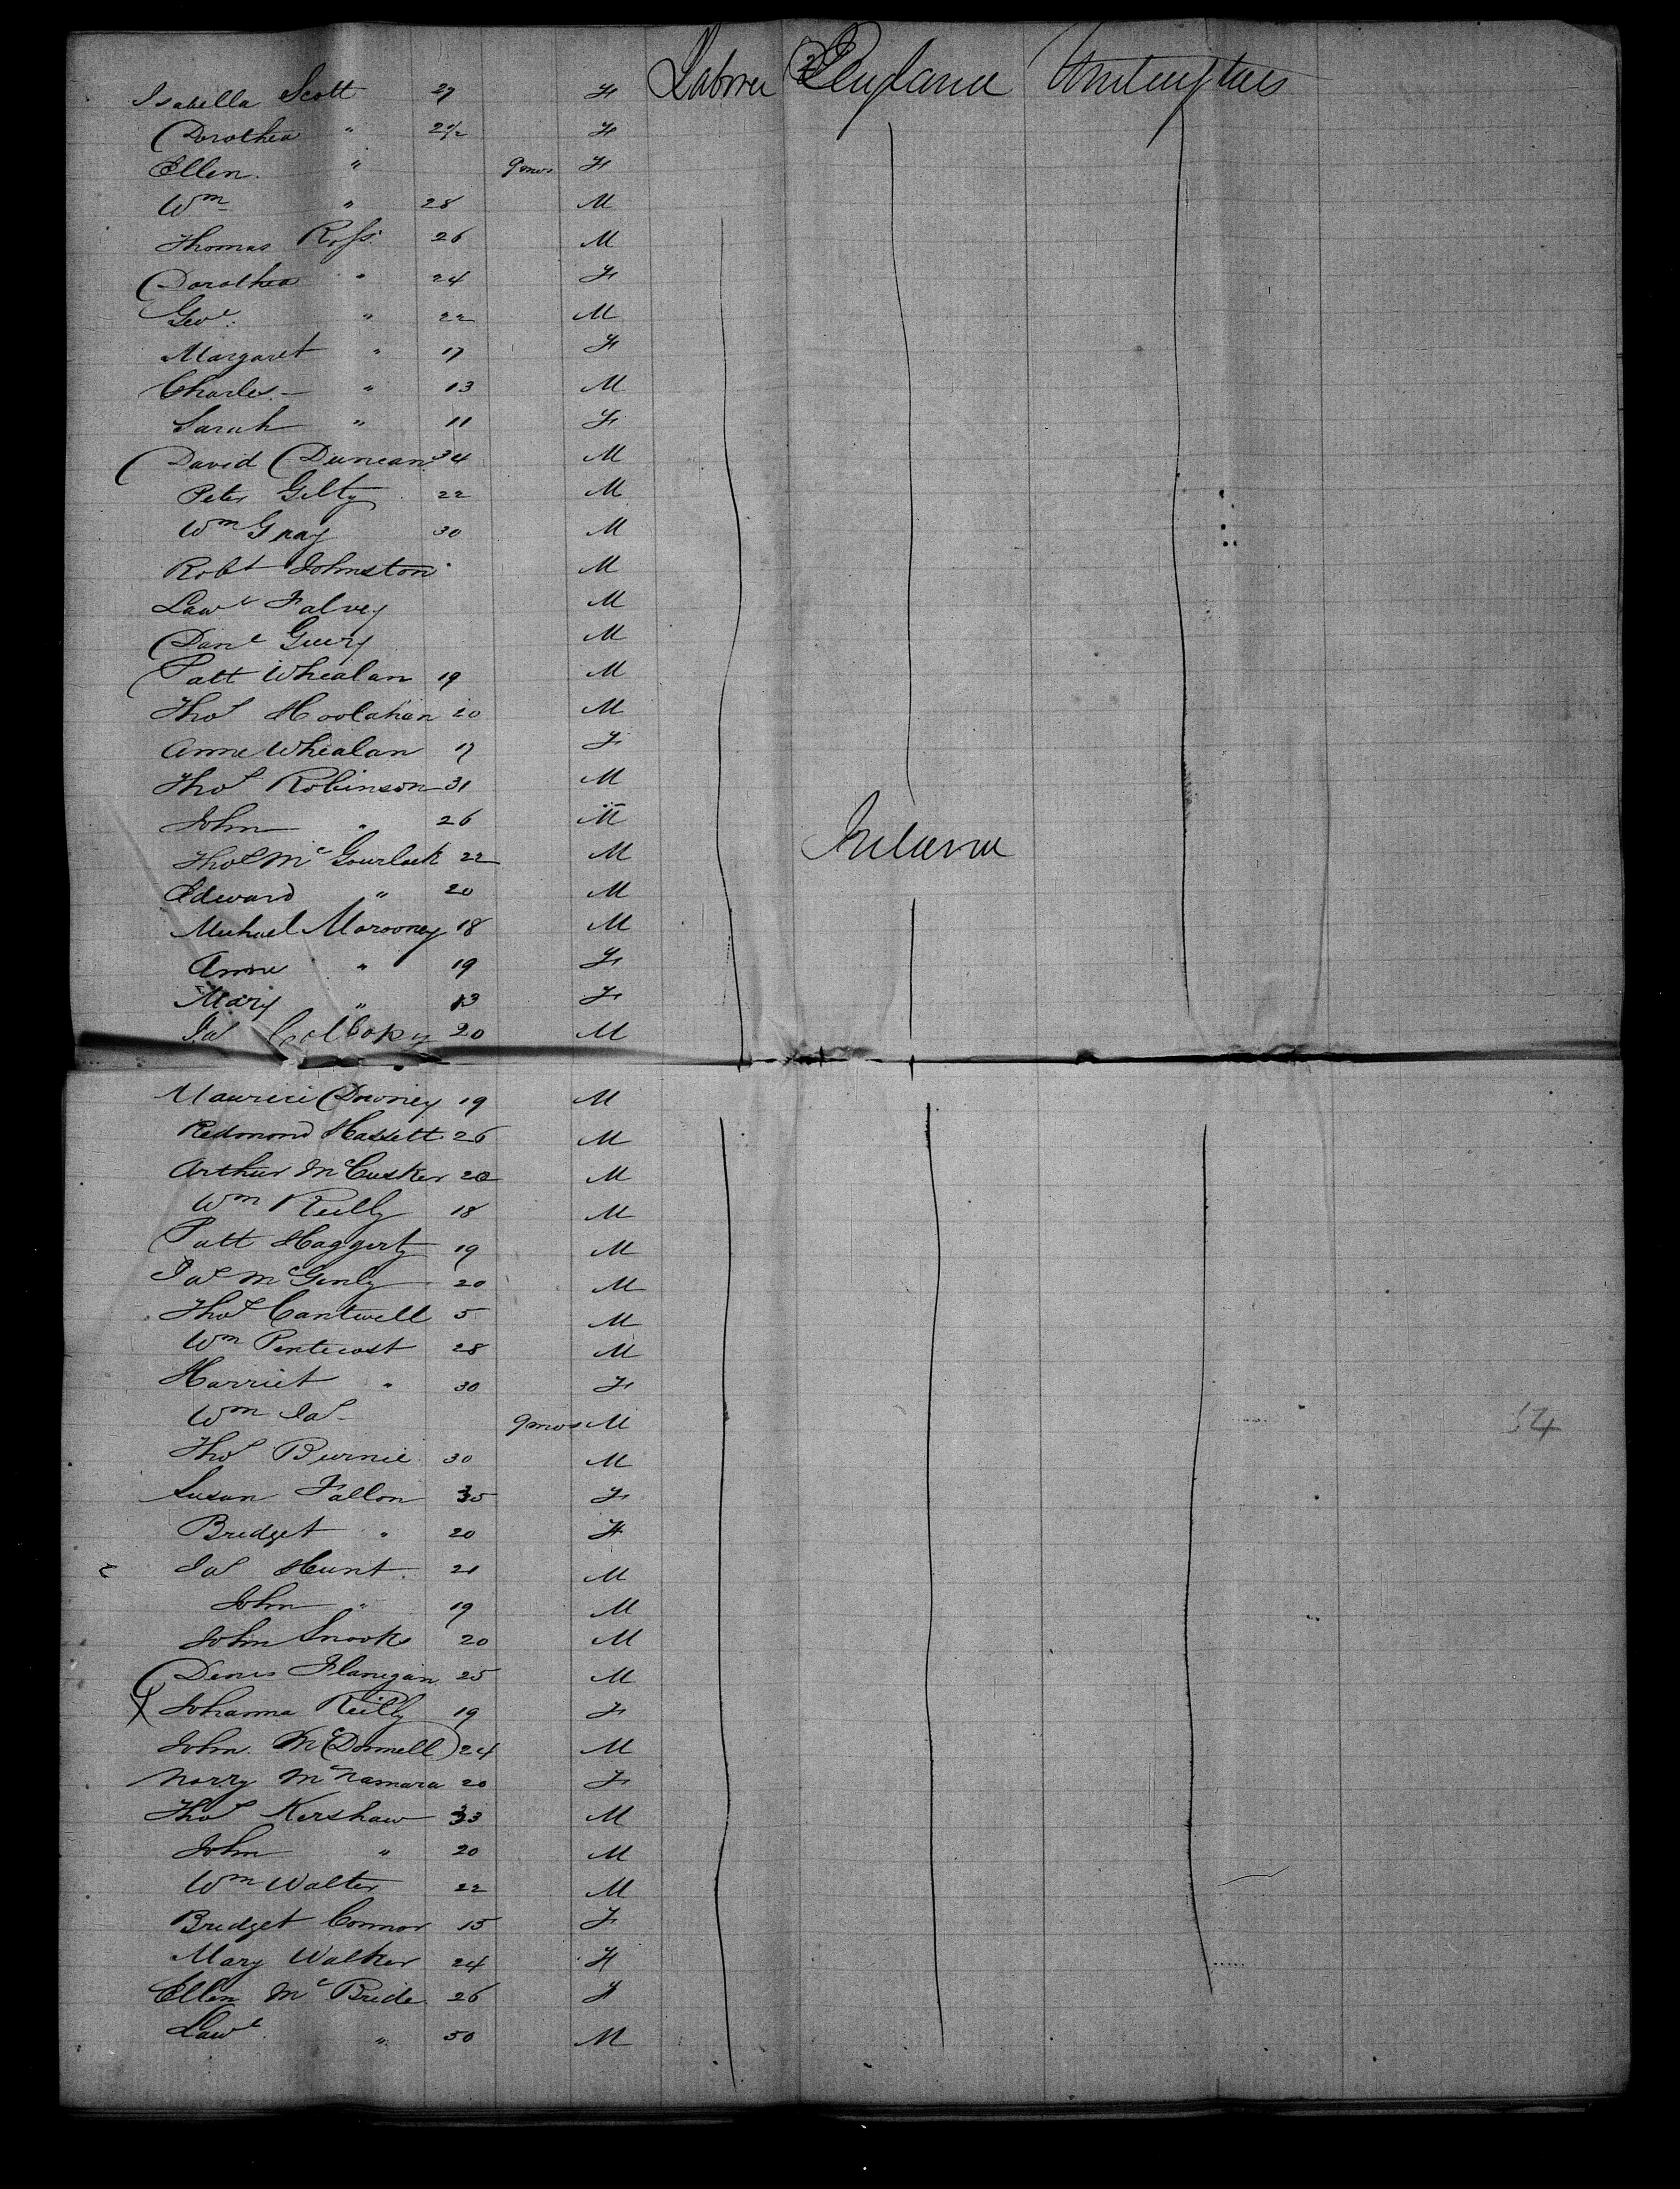 Isabella Scott 27 F Laborer England United States
Dorothea " 2 1/2 F
Ellen " 9 mos F
Wm " 28 M
Thomas Ross 26 M
Dorothea " 24 F
Geo: " 22 M
Margaret " 17 F
Charles " 13 M
Sarah " 11 F
David Duncan 34 M
Peter Gilty 22 M
Wm Gray 30 M
Robt Johnston M
Lawe Falvey M
Danl M
Patt Whealan 19 M
Thos Hoolahan 20 M
Anne Whealan 17 F
Thos Robinson 31 M
John " 26 M
Thos Mc Gourlock 22 M Ireland
Edward " 20 M
Michael Marooney 18 M
Anne " 19 F
Mary " 13 F
Jas 20 M
Maurice Downey 19 M
Redmond Hassett 26 M
Arthur McCusker 20 M
Wm Reilly 18 M
Patt Haggerty 19 M
Jas McGinly 20 M
Thos Cantwell 5 M
Wm Pentecost 28 M
Harriet " 30 F
Wm Jas 9 mos M
54
Thos Burnie 30 M
Susan Fallon 35 F
Bridget " 20 F
Jas Hunt 21 M
John " 19 M
John Snooks 20 M
Denis Flanegan 25 M
X Johanna Reilly 19 F
John McDonnell 24 M
Norry McNamara 20 F
Thos Kershaw 33 M
John " 20 M
Wm Walter 22 M
Bridget Connor 15 F
Mary Walker 24 F
Ellen Mc Bride 26 F
Lawe " 50 M